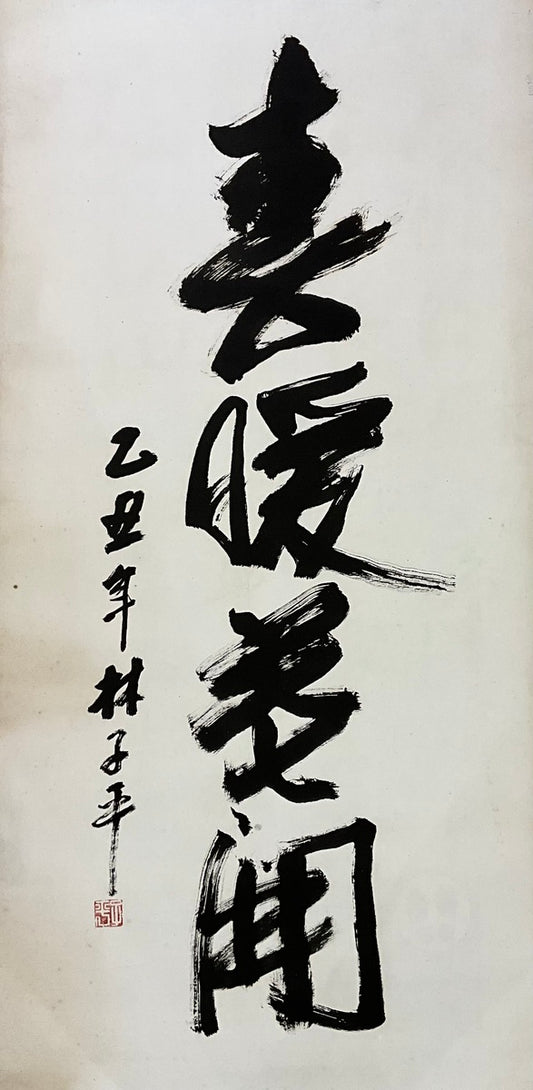 春暖花開
乙丑年林子平